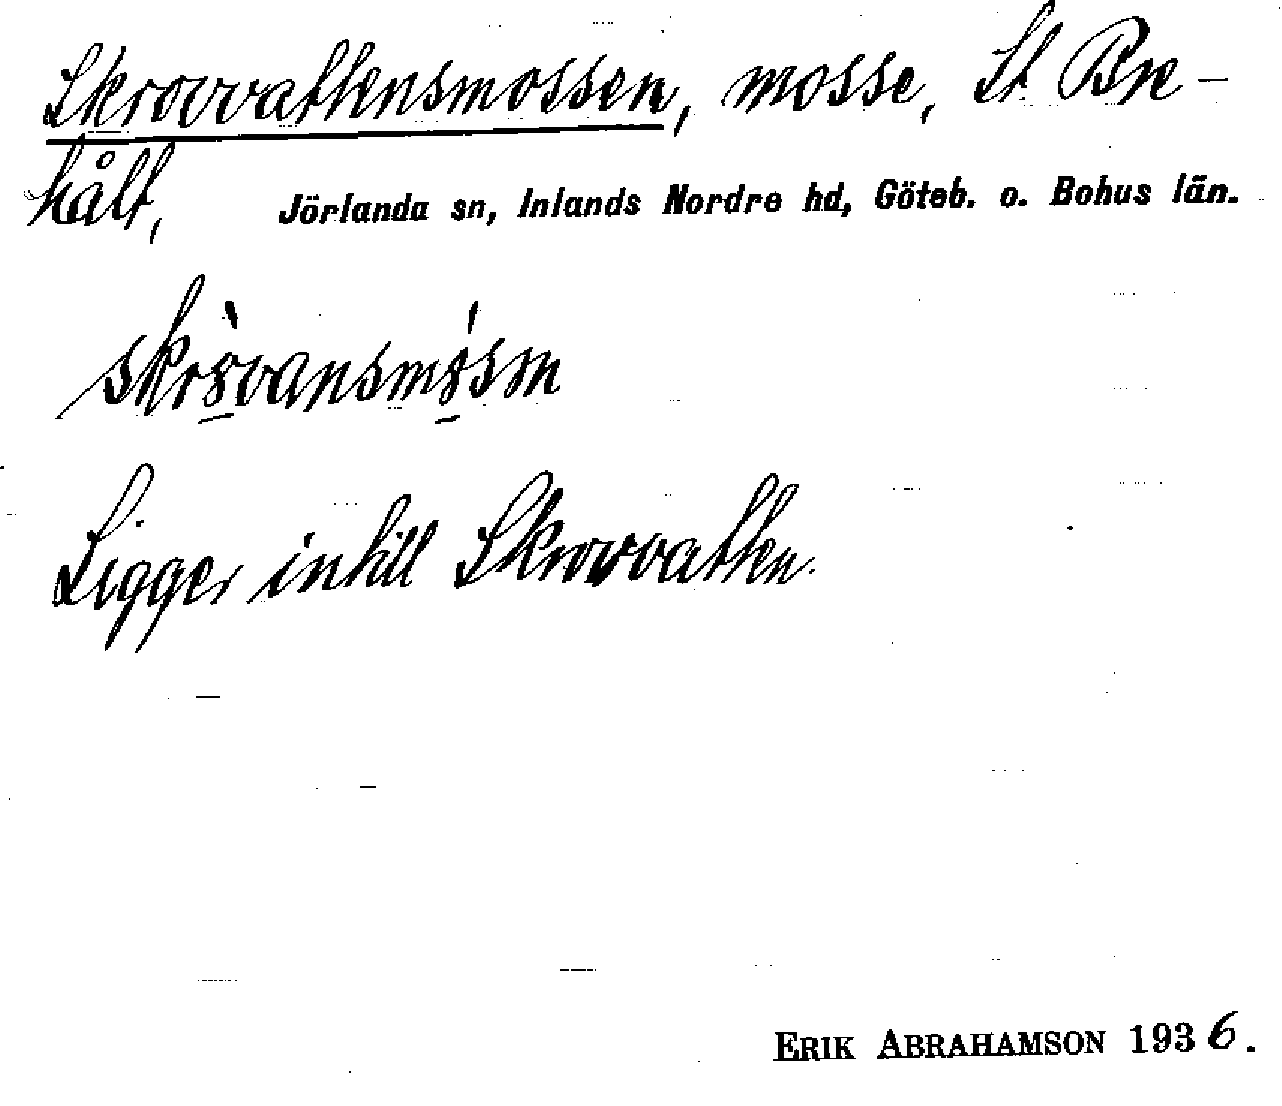 Skrovvattensmossen, mosse, St Bre-
hålt, Jörlanda sn, Inlands Nordre hd, Göteb. o. Bohus län.
Ligger intill Skrovvatten.
ERIK ABRAHAMSON 1936.